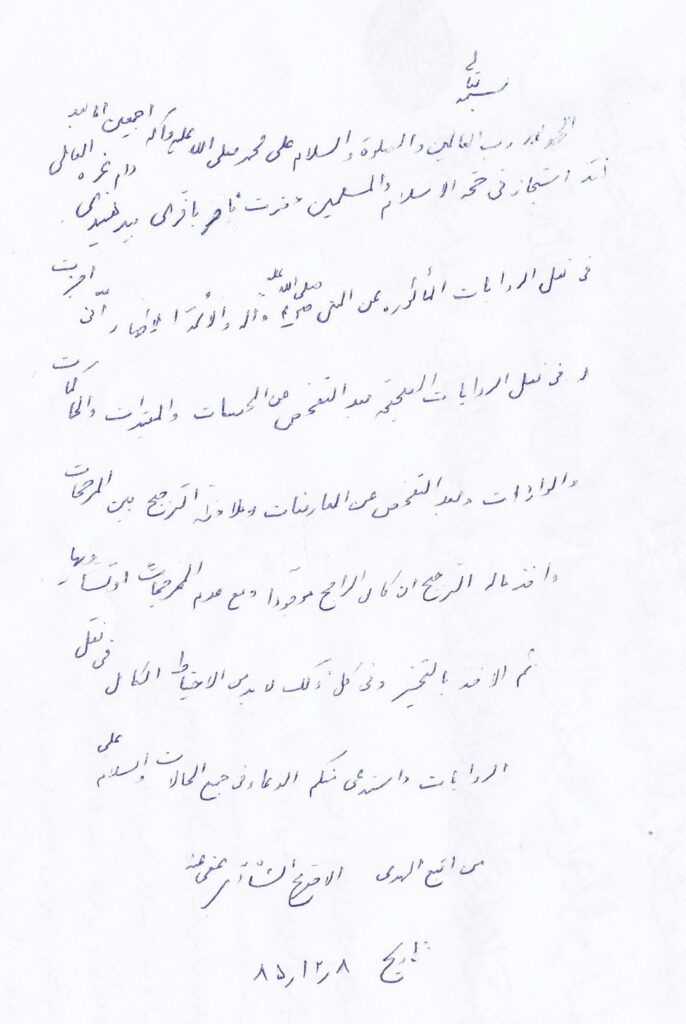 بسمه تعالی
الحمد لله رب العالمین والصلوة والسلام علی محمد صلی الله علیه وآله اجمعین اما بعد
فقد استجاز فی حجة الاسلام والمسلمین حضرت ناصر باقری بیدهندی دام عزه العالی
فی نقل الروایات المأثوره عن النبی صلی الله علیه وآله والأئمة الاطهار انّی اجزت
له فی نقل الروایات الصحیحة بعد التفحص عن المخصصات والمقیدات والحاکمات
والواردات وبعد التفحص عن المعارضات وملاحظة الترجیح بین المرجحات
واخذ ماله الترجیح ان کان الراجح موجودا ومع عدم المرجحات او تساویها
ثم الاخذ بالتخییر وفی کل ذلک لابد من الاحتیاط الکامل فی نقل
الروایات واستدعی منکم الدعاء فی جمیع الحالات والسلام علی
من اتبع الهدی الاحقر عفی عنه
تاریخ ۸۵/۱۲/۸